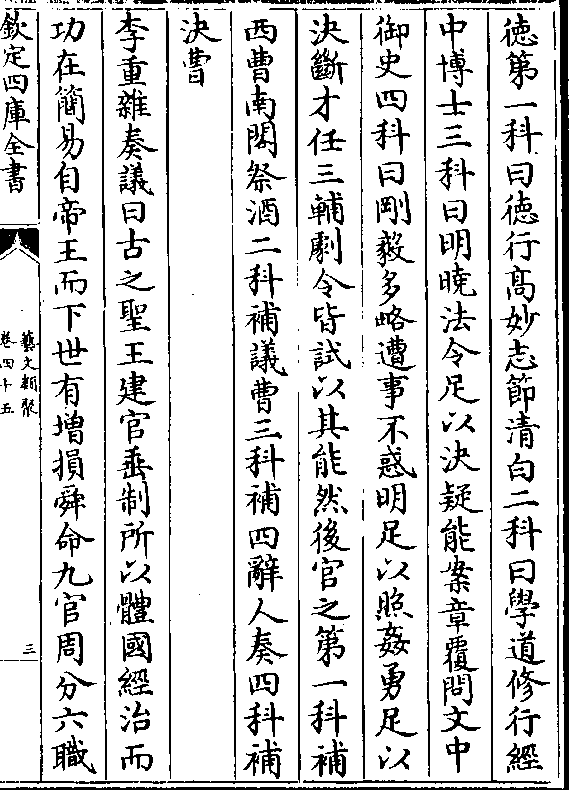 徳第一科曰徳行髙妙志節清白二科曰學道修行經
中博士三科曰明曉法令足以決疑能案章覆問文中
御史四科曰剛毅多略遭事不惑明足以照姦勇足以
決斷才任三輔劇令皆試以其能然後官之第一科補
西曹南閣祭酒二科補議曹三科補四辭人奏四科補
決曹
李重雜奏議曰古之聖王建官垂制所以體國經治而
功在簡易自帝王而下世有增損舜命九官周分六職
欽定四庫全書
藝文類聚
卷四十五
三